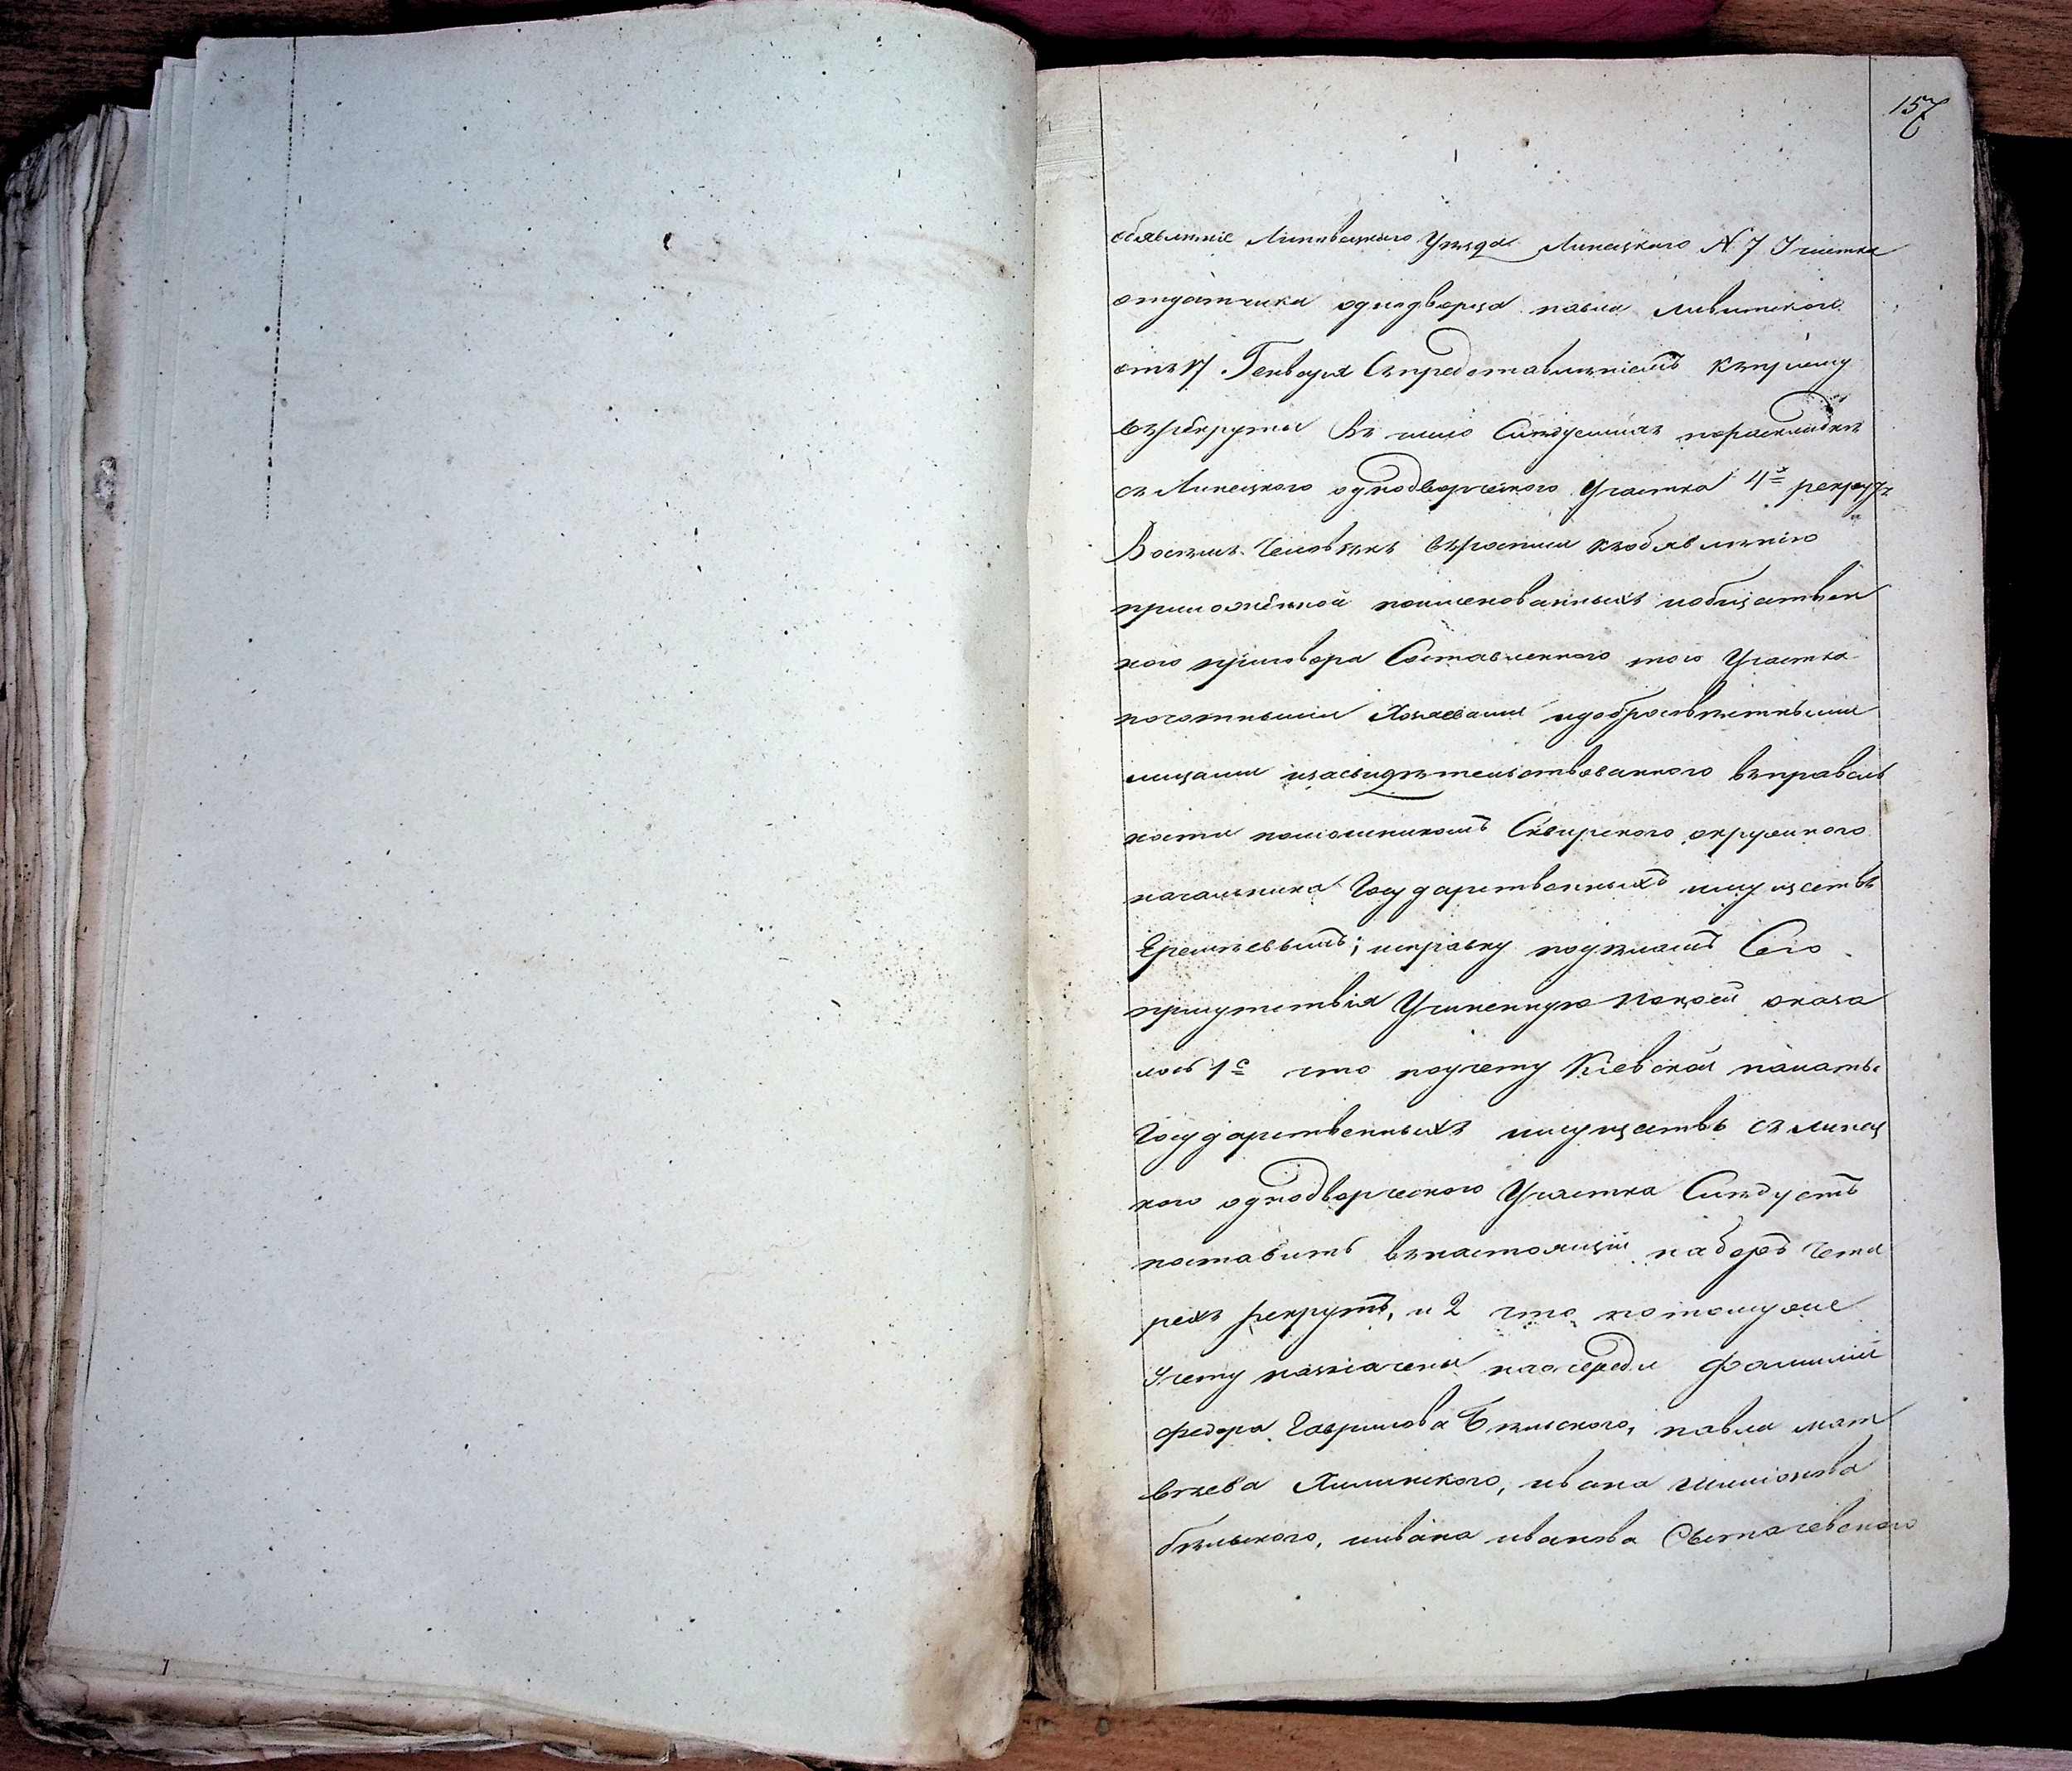 157
объявленіе Липовецкаго Уѣзда Липецкаго № 7 Участка
отдатчика однодворца павла ливитского
отъ 17 Генваря Съпредставленіемъ къпріему
върекруты Въ число Слѣдуемыхъ пораскладкѣ
съ Липецкого однодворческого Участка 4х рекрутъ
Восемь Человѣкъ въросписи къобявлѣнію
приложенной поименованныхъ иобществен
ного приговора Составленного того Участка
почотными Хозяевами идобросовѣстными
лицами изасвидѣтельствованного въправиль
ности помощникомъ Сквирского окружного
начальника Государственныхъ имуществъ
; исправку подѣламъ Сего
присутствія Учиненную покоей оказа
лось 1е что поучету Кіевской палаты
Государственныхъ имуществъ съ липец
кого однодворческого Участка Слѣдуетъ
поставить внастоящій наборъ Четы
рехъ рекрутъ, и 2 что потомуже
Учету назначены наочереди фамиліи
федора Гаврилова Бѣльского, павла мат
вѣева Хилинского, ивана симіонова
бѣльского, иивана иванова